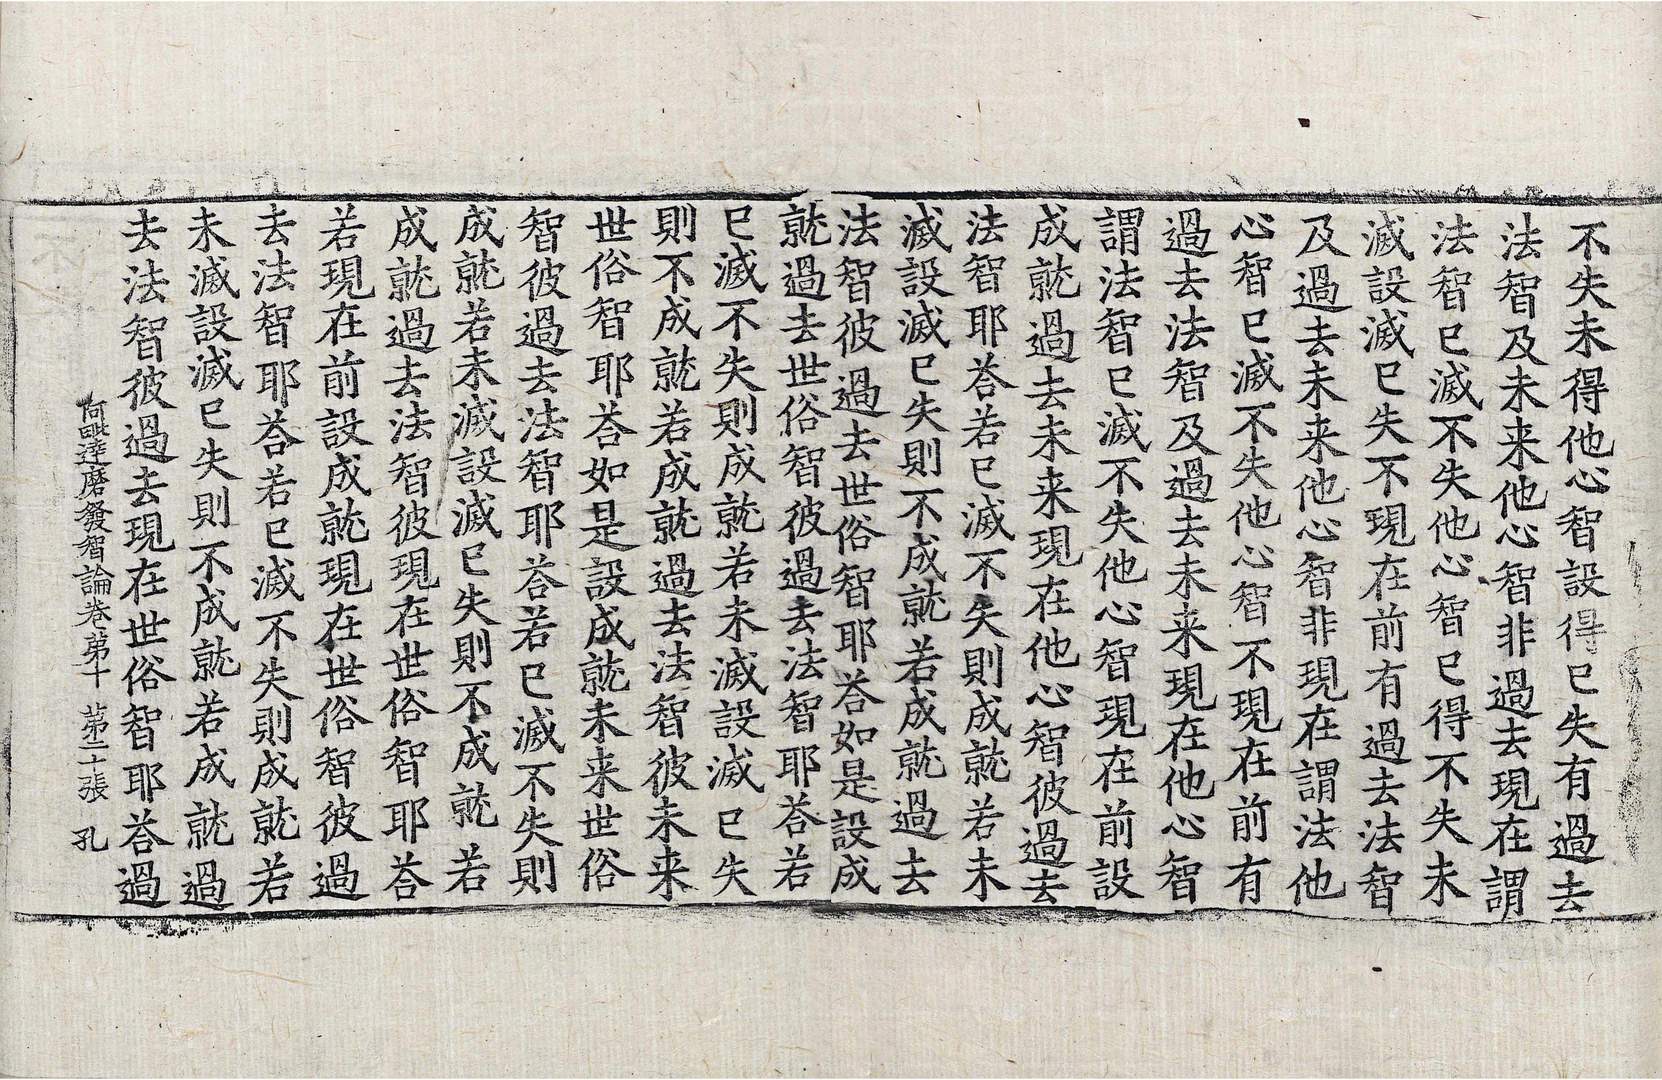 不失未得他心智設得已失有過去
法智及未来他心智非過去現在謂
法智已滅不失他心智已得不失未
滅設滅已失不現在前有過去法智
及過去未来他心智非現在謂法他
心智已滅不失他心智不現在前有
過去法智及過去未来現在他心智
謂法智已滅不失他心智現在前設
成就過去未来現在他心智彼過去
法智耶荅若已滅不失則成就若未
滅設滅已失則不成就若成就過去
法智彼過去世俗智耶荅如是設成
就過去世俗智彼過去法智耶荅若
已滅不失則成就若未滅設滅已失
則不成就若成就過去法智彼未来
世俗智耶荅如是設成就未来世俗
智彼過去法智耶荅若已滅不失則
成就若未滅設滅已失則不成就若
成就過去法智彼現在世俗智耶荅
若現在前設成就現在世俗智彼過
去法智耶荅若已滅不失則成就若
未滅設滅已失則不成就若成就過
去法智彼過去現在世俗智耶荅過
阿毗達磨發智論卷第十 第二十張 孔